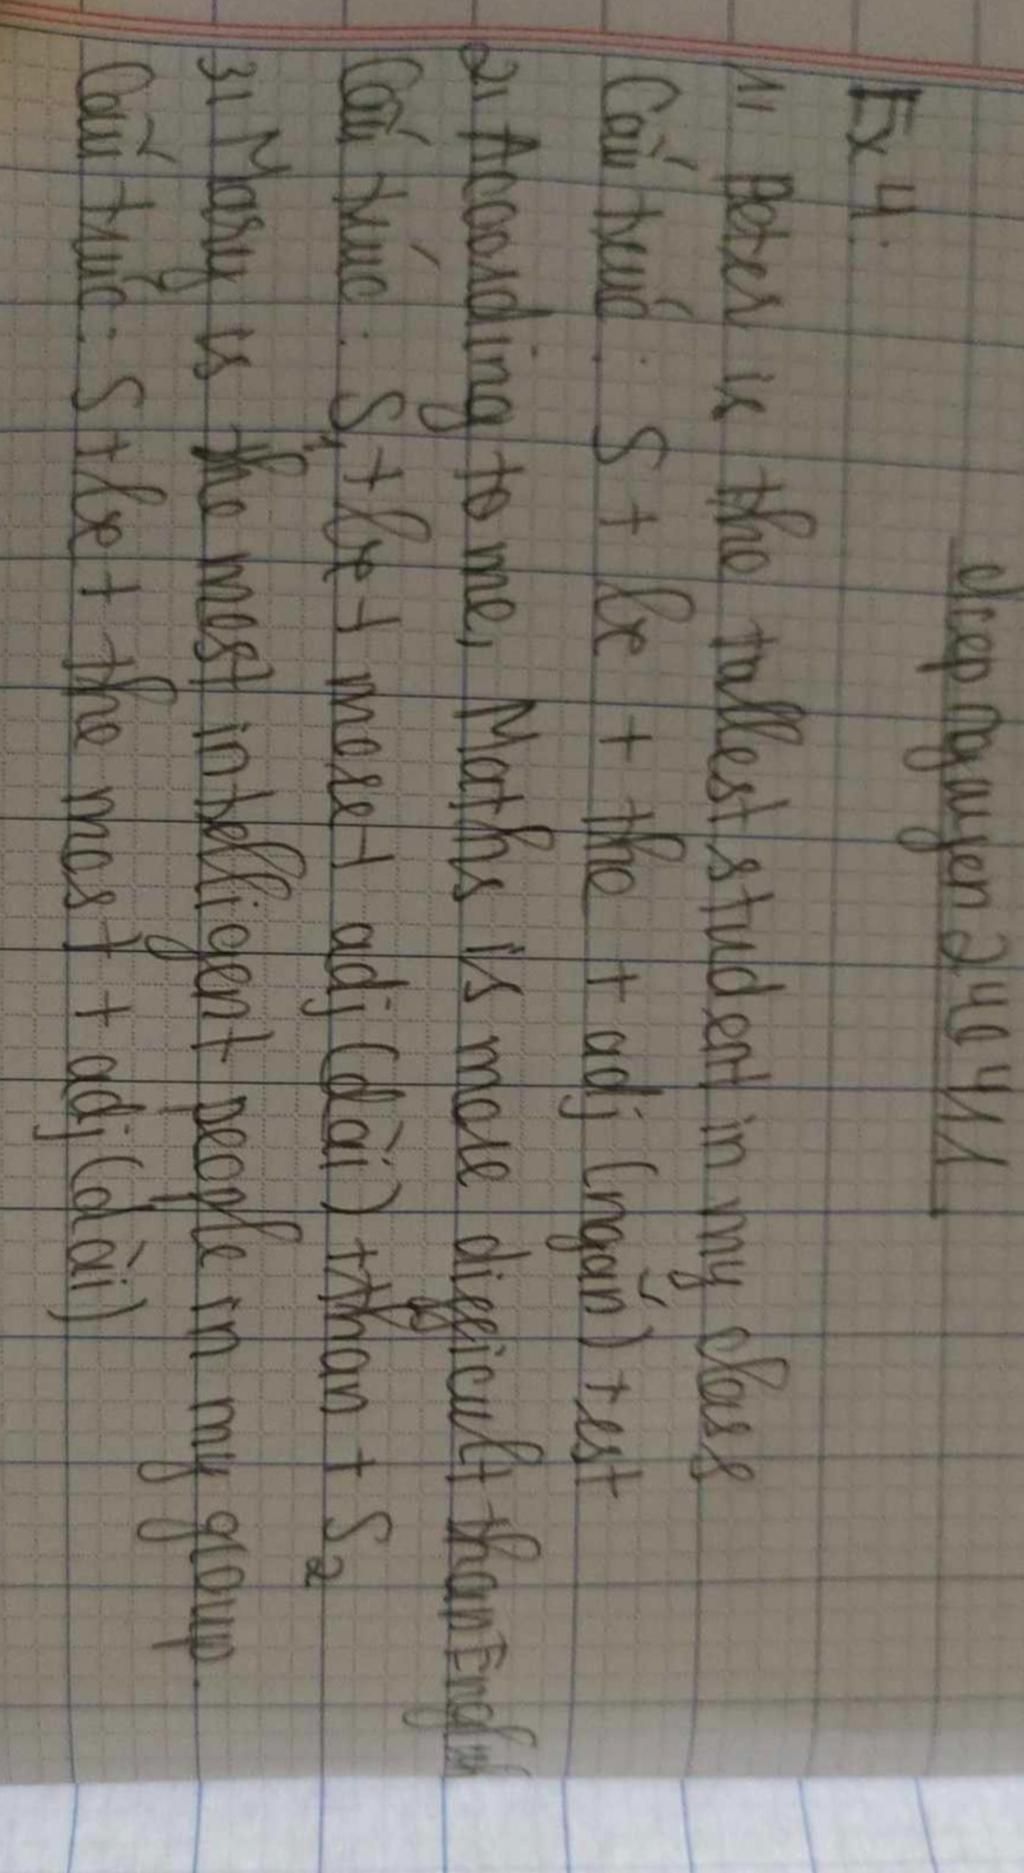 diepnguyen24041
Ex 4.
1, Peter is the tallest student in my class
Cấu trúc: S + be + the + adj (ngắn) + est
2, According to me, Maths is more difficult than English
Cấu trúc: S1 + be + more + adj (dài) + than + S2
3, Mary is the most intelligent people in my group.
Cấu trúc: S + be + the most + adj (dài)